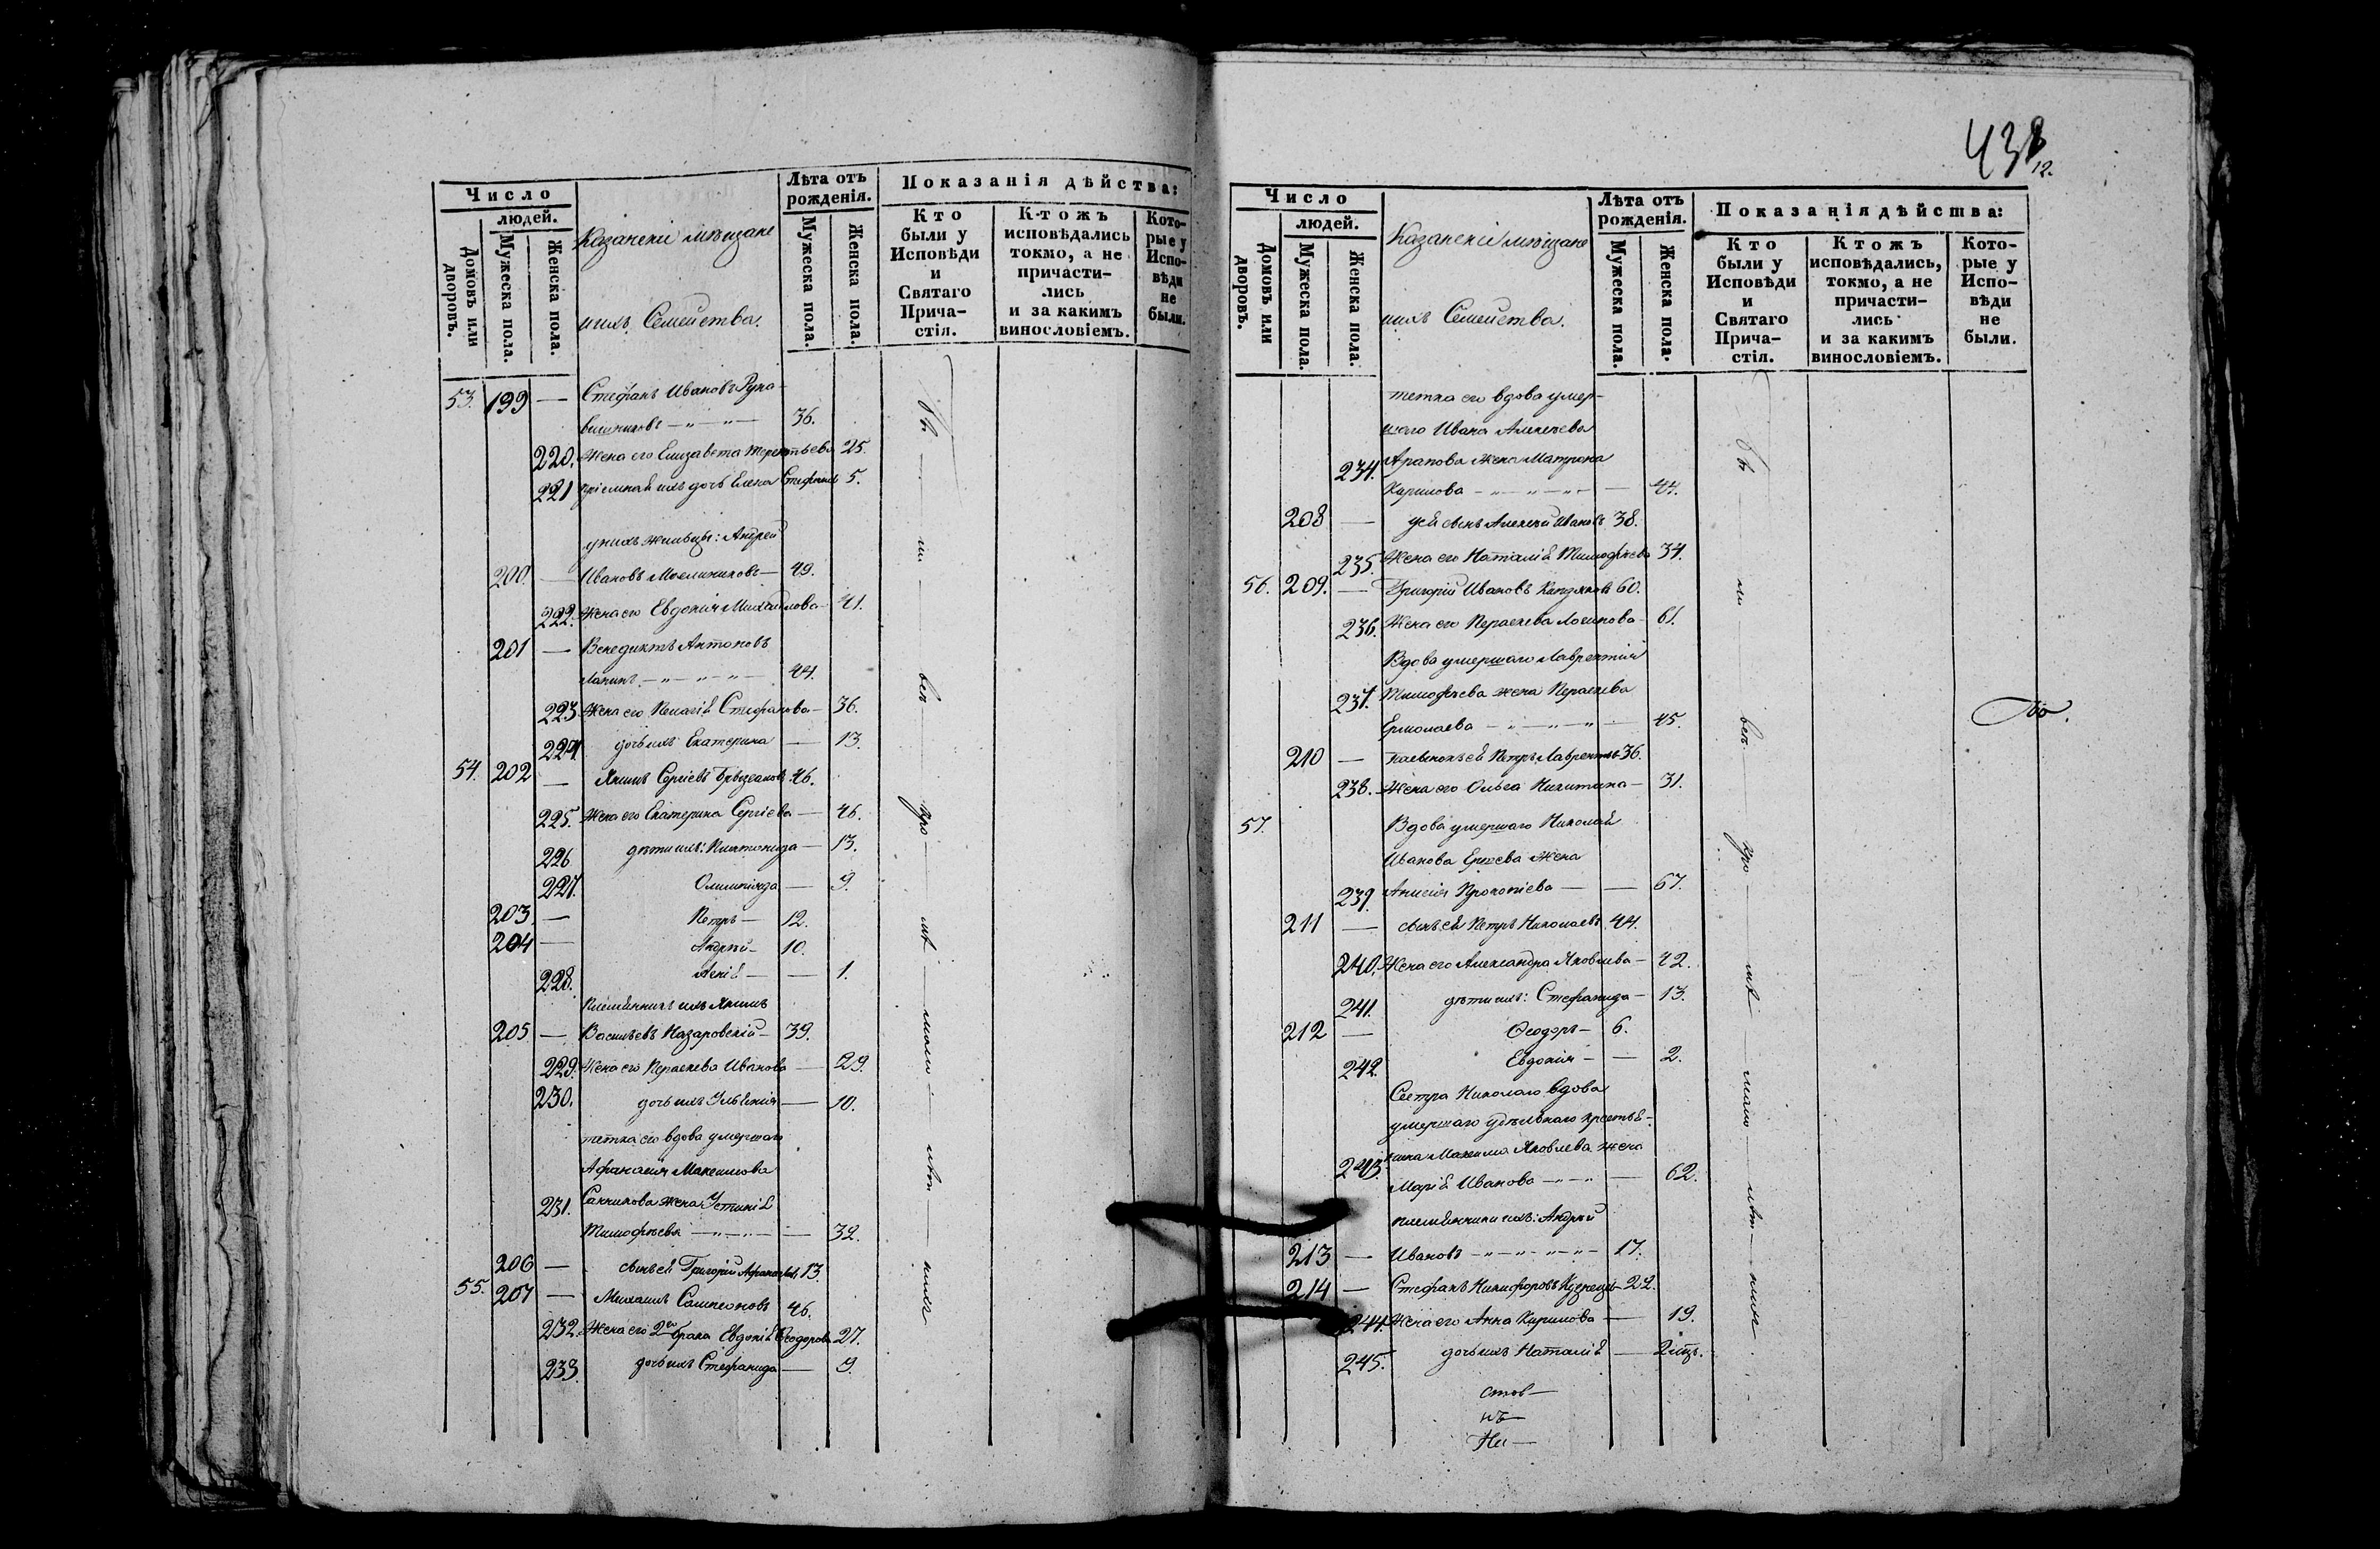 Число
людей.
Домовъ или дворовъ.
Мужеска пола.
Женска пола.
Казанскiе мѣщане
и ихъ Семейства.
Лѣта отъ рожденія.
Мужеска пола.
Женска пола.
Показанія дѣйства:
Кто были у Исповѣди и Святаго Прича-стія.
Ктожъ исповѣдались токмо, а не причасти-лись и за какимъ винословіемъ.
Кото-рые у Испо-вѣди не были.
53. 199 — Стефанъ Ивановъ Рука-
вишниковъ — 36.
220. Жена его Елизавета Терентьева 25.
221 пріемная ихъ дочь Елена Стефанова 5.
у нихъ жильцы: Андрей
200. — Ивановъ Масленниковъ — 49.
222. Жена его Евдокія Михайлова — 41.
201 — Венедиктъ Антоновъ
Лапинъ — 44.
223. Жена его Пелагія Стефанова — 36.
224 дочь ихъ Екатерина — 13.
54. 202 — Якимъ Сергіевъ 46.
225. Жена его Екатерина Сергіева — 46.
226 дѣти ихъ: — 13.
227. Олимпіяда — 9.
203 — Петръ — 12.
204 — Андрей — 10.
228. — 1.
Племянникъ ихъ Якимъ
205 — Васильевъ Назаровскій — 39.
229. Жена его Параскева Иванова — 29.
230. дочь ихъ — 10.
тетка его вдова умершаго
Афанасія Максимова
231. Санникова жена Устинія
Тимофѣева — 32.
206 — сынъ ея Григорій Афанасьевъ 13.
55. 207 — Михаилъ Сампсоновъ 46.
232. Жена его 2го брака Евдокія Ѳеодорова 27.
233 дочь ихъ Стефанида — 9.
438
12.
Число
людей.
Домовъ или дворовъ.
Мужеска пола.
Женска пола.
Казанскіе мѣщане
и ихъ Семейства.
Лѣта отъ рожденія.
Мужеска пола.
Женска пола.
Показанія дѣйства:
Кто были у Исповѣди и Святаго Прича-стія.
Ктожъ исповѣдались, токмо, а не причасти-лись и за какимъ винословіемъ.
Кото-рые у Испо-вѣди не были.
тетка его вдова умер-
шаго Ивана Алексѣева
234. Арапова жена Матрона
Карпова — 44.
208 — сынъ Алексѣй Ивановъ 38.
235. Жена его Наталія Тимофѣева 34.
56. 209. — Григорій Ивановъ 60.
236. Жена его Параскева Логинова — 61.
Вдова умершаго Лаврентія
237. Тимофѣева жена Параскева
Ермолаева — 45.
210 — пасынокъ ея Петръ Лаврентьевъ 36.
238. Жена его Ольга Никитина — 31.
57. Вдова умершаго Николая
Иванова жена
239. Анисія Прокопіева — 67.
211 — сынъ ея Петръ Николаевъ 44.
240. Жена его Александра Яковлева — 42.
241. дѣти ихъ: Стефанида — 13.
212 — Ѳеодоръ — 6.
242. Евдокія — 2.
Сестра Николаю вдова
умершаго удѣльнаго крестья-
243. нина Максима Яковлева жена
Марія Иванова — 62.
племянники ихъ: Андрей
213 — Ивановъ — 17.
214 — Стефанъ Никифоровъ 22.
244. Жена его Анна Кирилова — 19.
245. дочь ихъ Наталія — 2 мѣс.